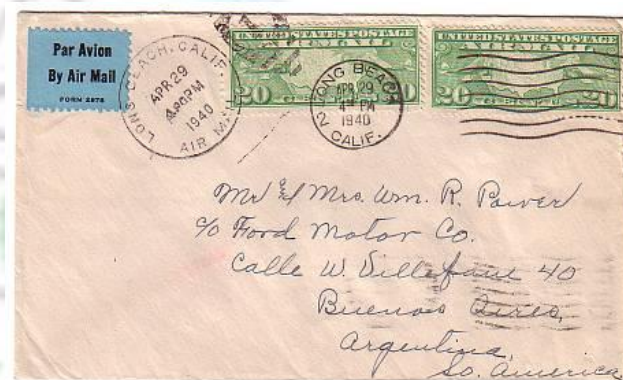 Par Avion
By Air Mail
FORM 2978
LONG BEACH, CALIF.
APR 29
PM
1940
AIR
UNITED STATES POSTAGE
AIR MAIL
20 CENTS 20
LONG BEACH
APR 29
4 PM
1940
2 CALIF.
UNITED STATES POSTAGE
AIR MAIL
20 CENTS 20
Mr & Mrs. Wm. R. Power
c/o Ford Motor Co.
Calle W. Villafane 40
Buenos Aires,
Argentina,
So. America